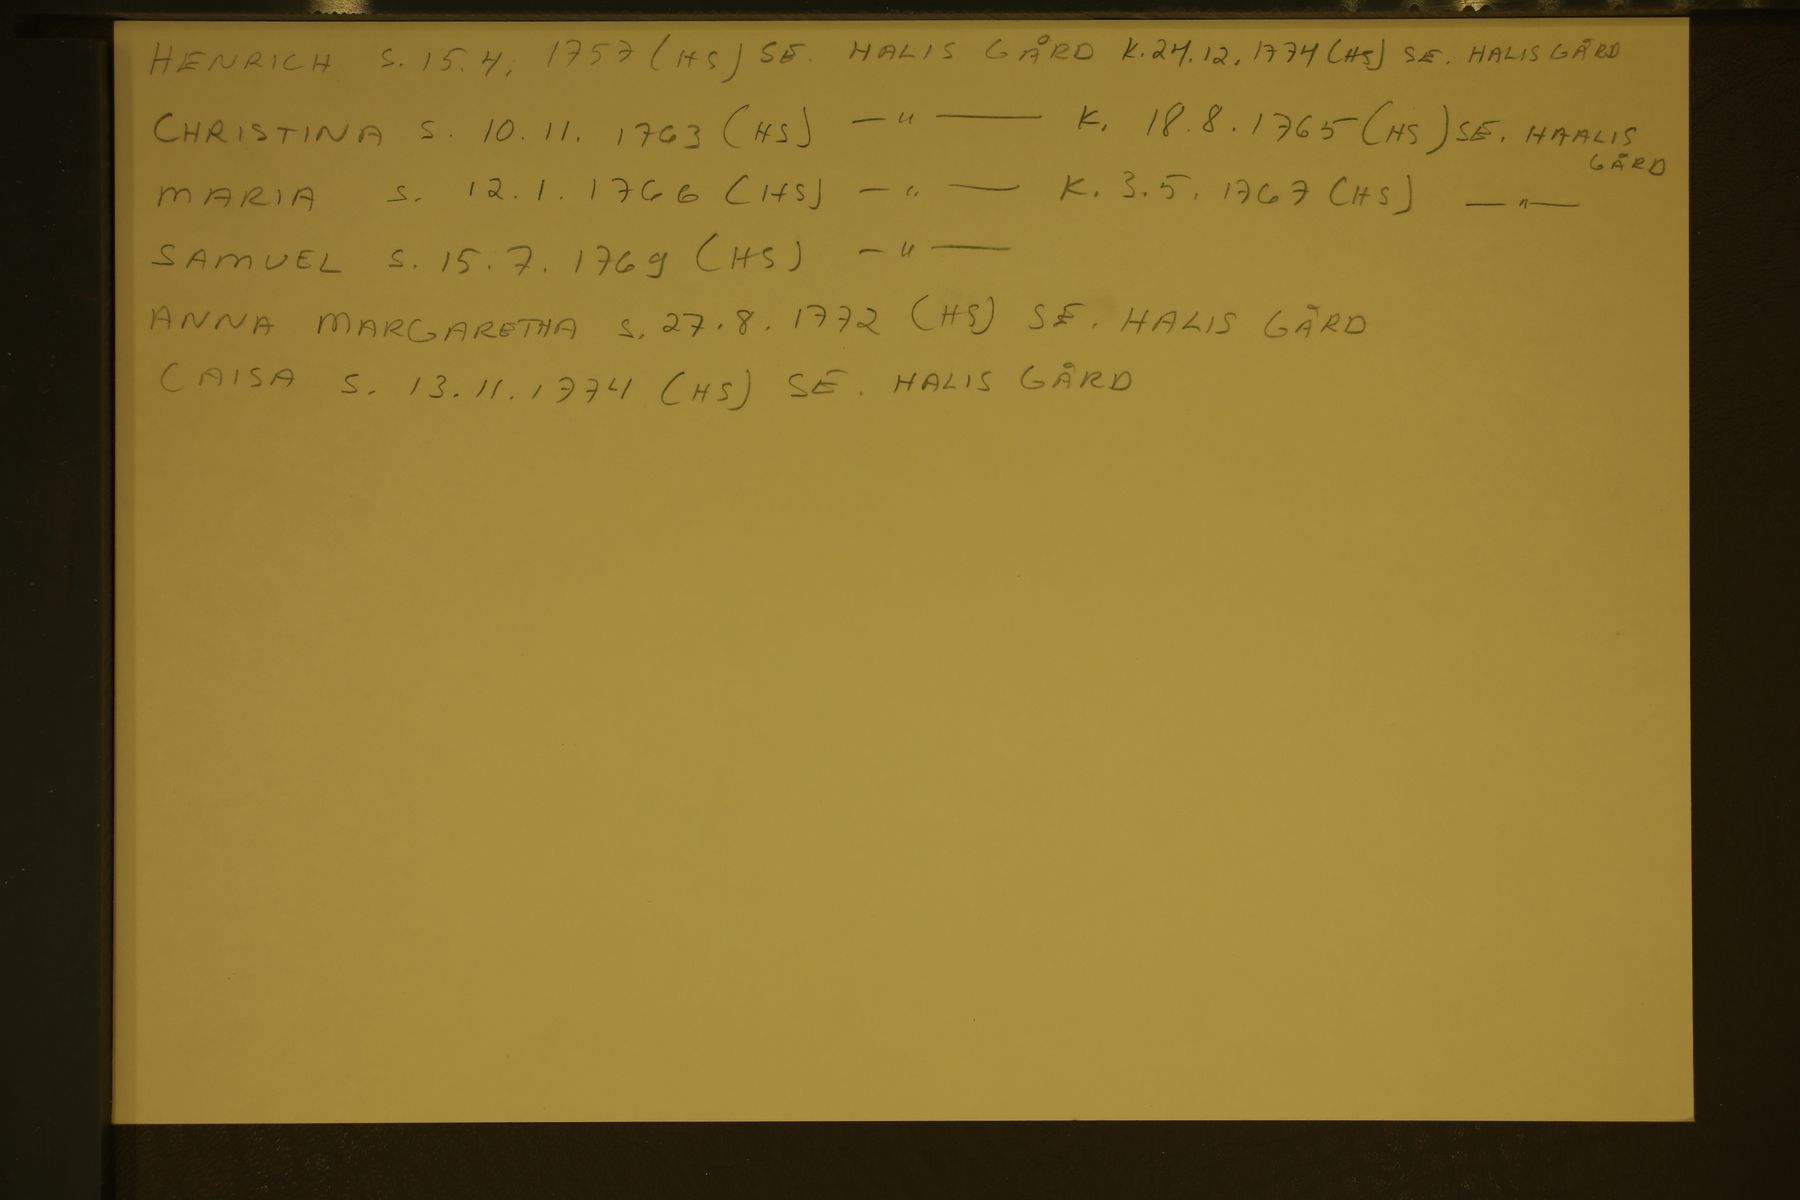 HENRICH S. 15.4. 1757 (HS) SE. HALIS GÅRD K. 24.12.1774 (HS) SE. HALIS GÅRD
CHRISTINA S. 10.11. 1763 (HS) —"— K. 18.8.1765 (HS) SE. HAALIS
GÅRD
MARIA S. 12.1.1766 (HS) —"— K. 3.5.1767 (HS) —"—
SAMUEL S. 15.7.1769 (HS) —"—
ANNA MARGARETHA S. 27.8.1772 (HS) SE. HALIS GÅRD
CAISA S. 13.11.1774 (HS) SE. HALIS GÅRD